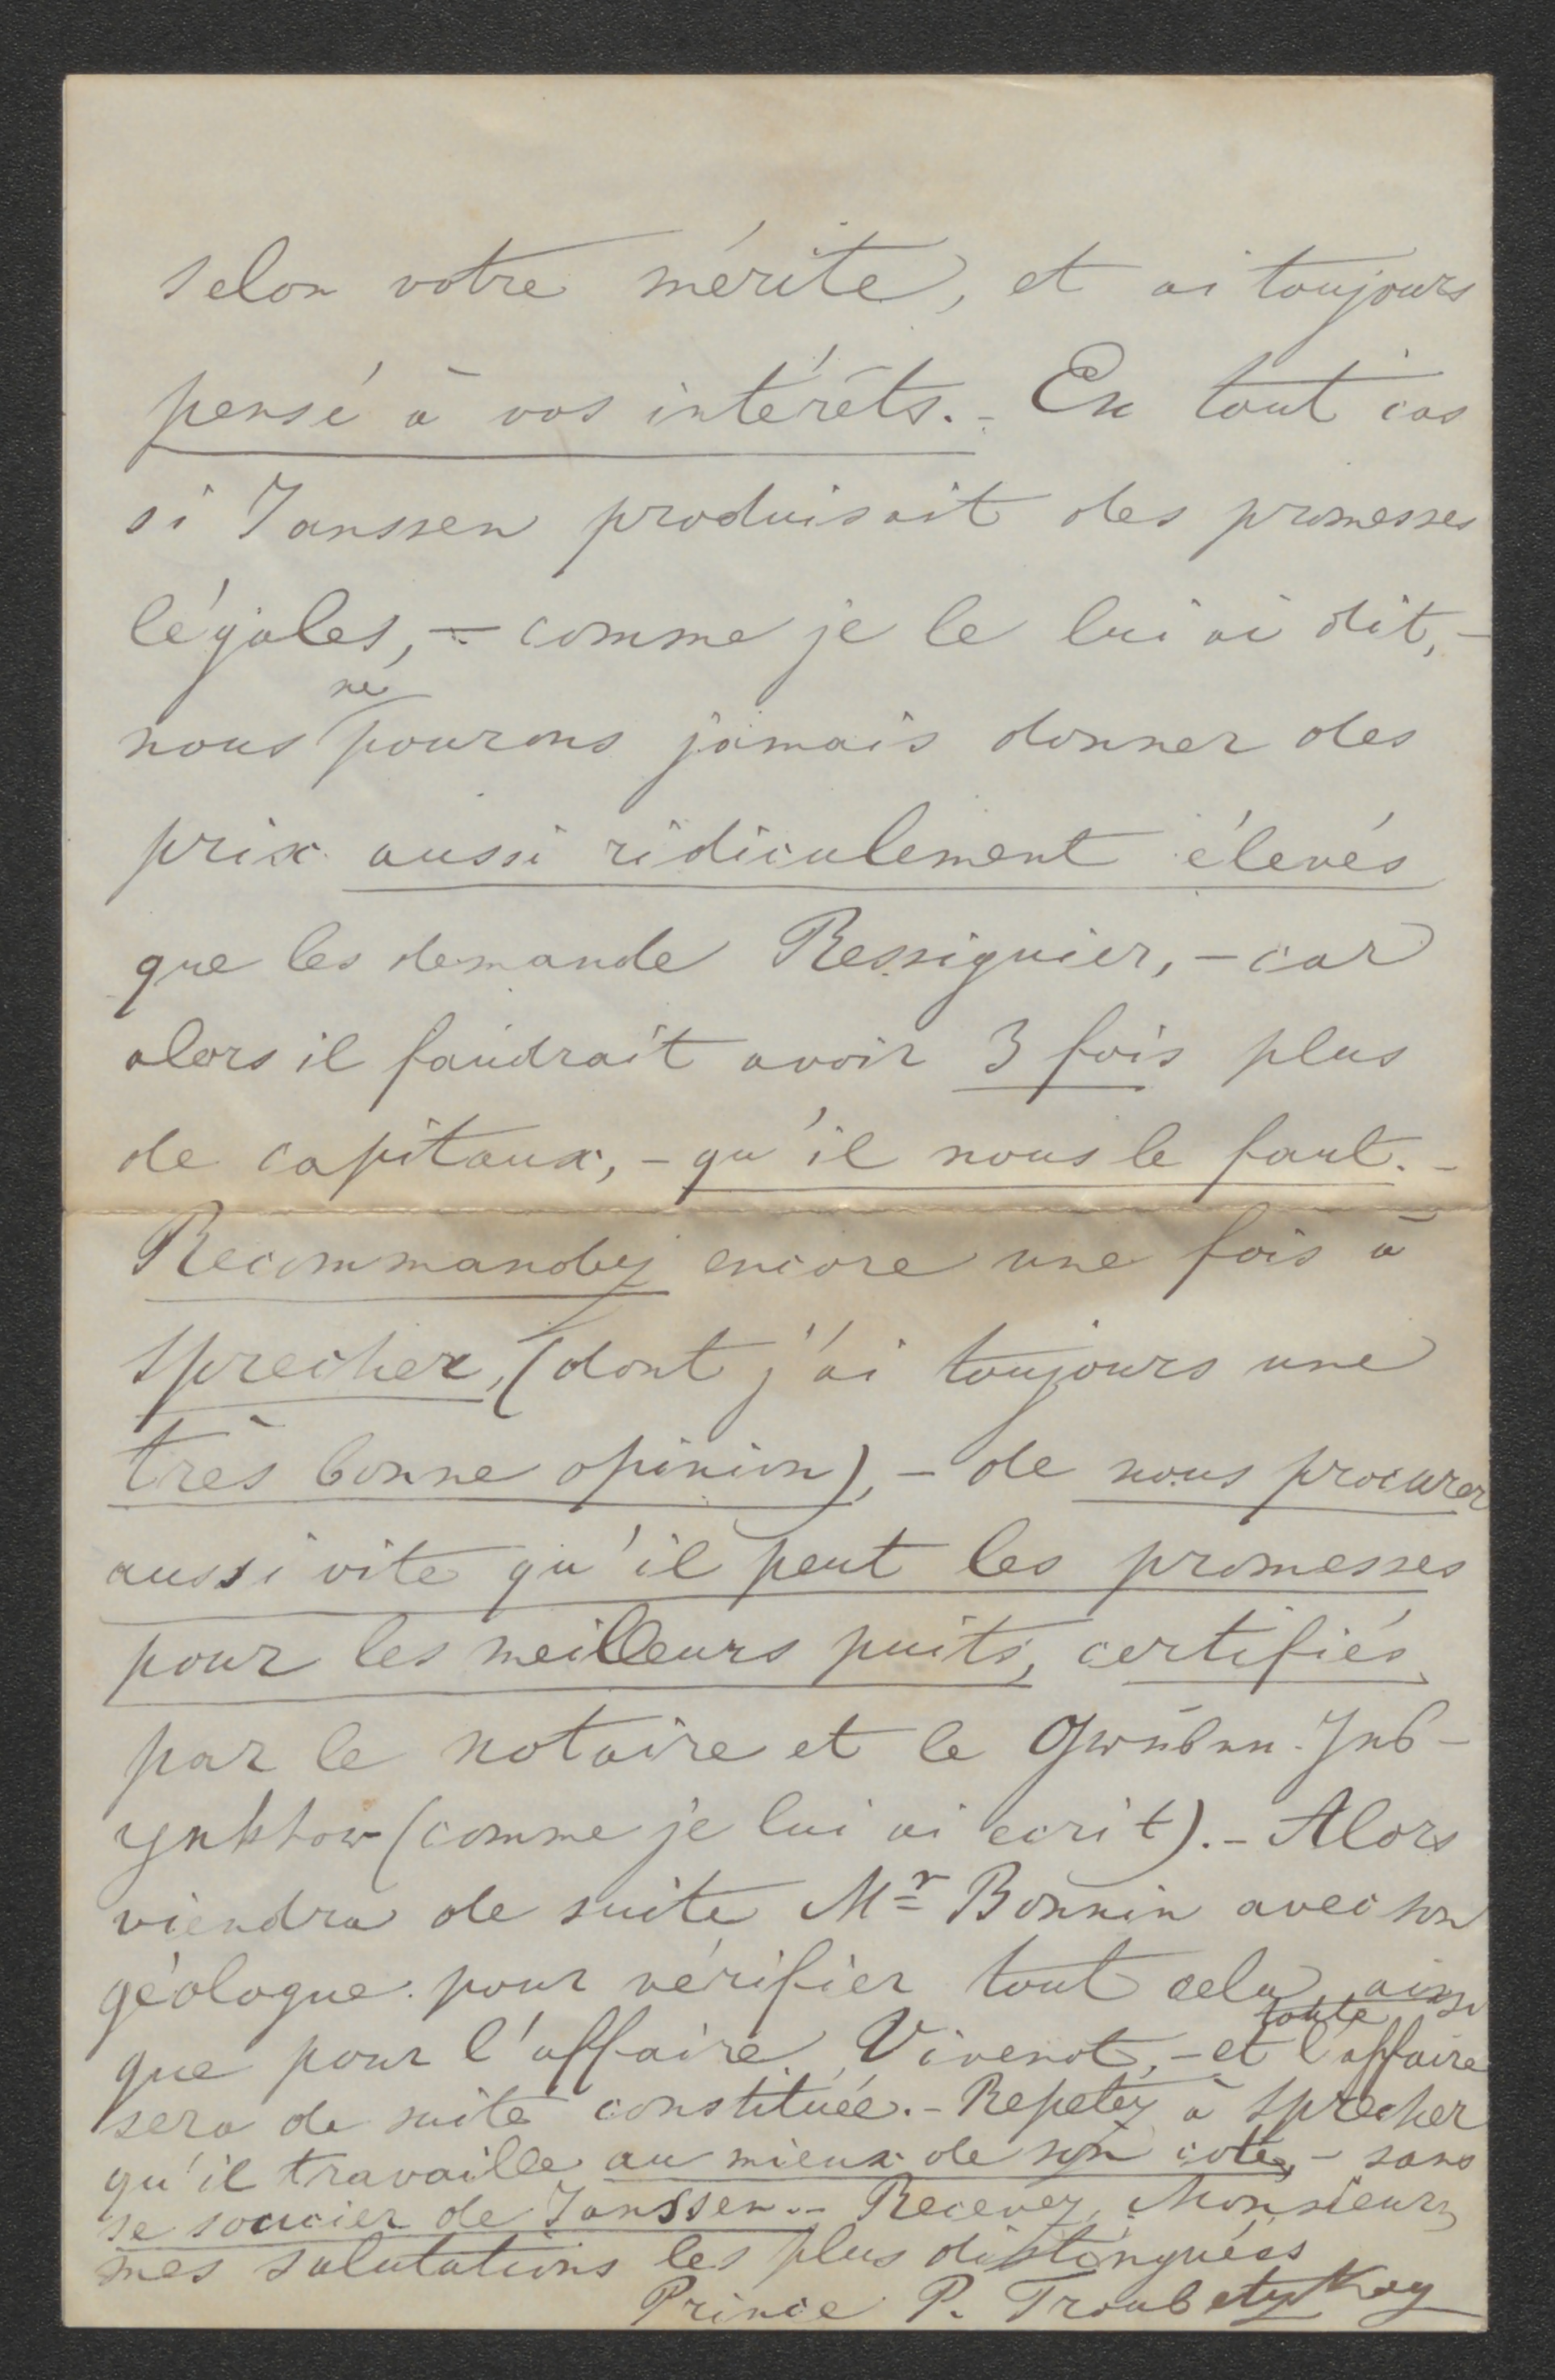 selon votre mérite, et ai toujours
pensé à vos intérêts. - En tout cas
si Janssen produisait des promesses
légales, - comme je le lui ai dit, -
nous ne pourons jamais donner des
prix aussi ridiculement élevés
que les demande Ressiguier, - car
alors il faudrait avoir 3 fois plus
de capitaux, - qu'il nous le faut. -
Recommandez encore une fois à
Sprecher, (dont j'ai toujours une
très bonne opinion), - de nous procurer
aussi vite qu'il peut les promesses
pour les meilleurs puits, certifiés
par le notaire et le
(comme je lui ai ecrit). - Alors
viendra de suite Mr Bonnin avec son
géologue pour vérifier tout cela, ainsi
que pour l'affaire Vivenot, - et toute l'affaire
sera de suite constituée. - Repetéz à Sprecher
qu'il travaille au mieux de son coté, - sans
se soucier de Janssen. - Recevez, Monsieur,
mes salutations les plus distinguées
Prince P. Troubetzkoy